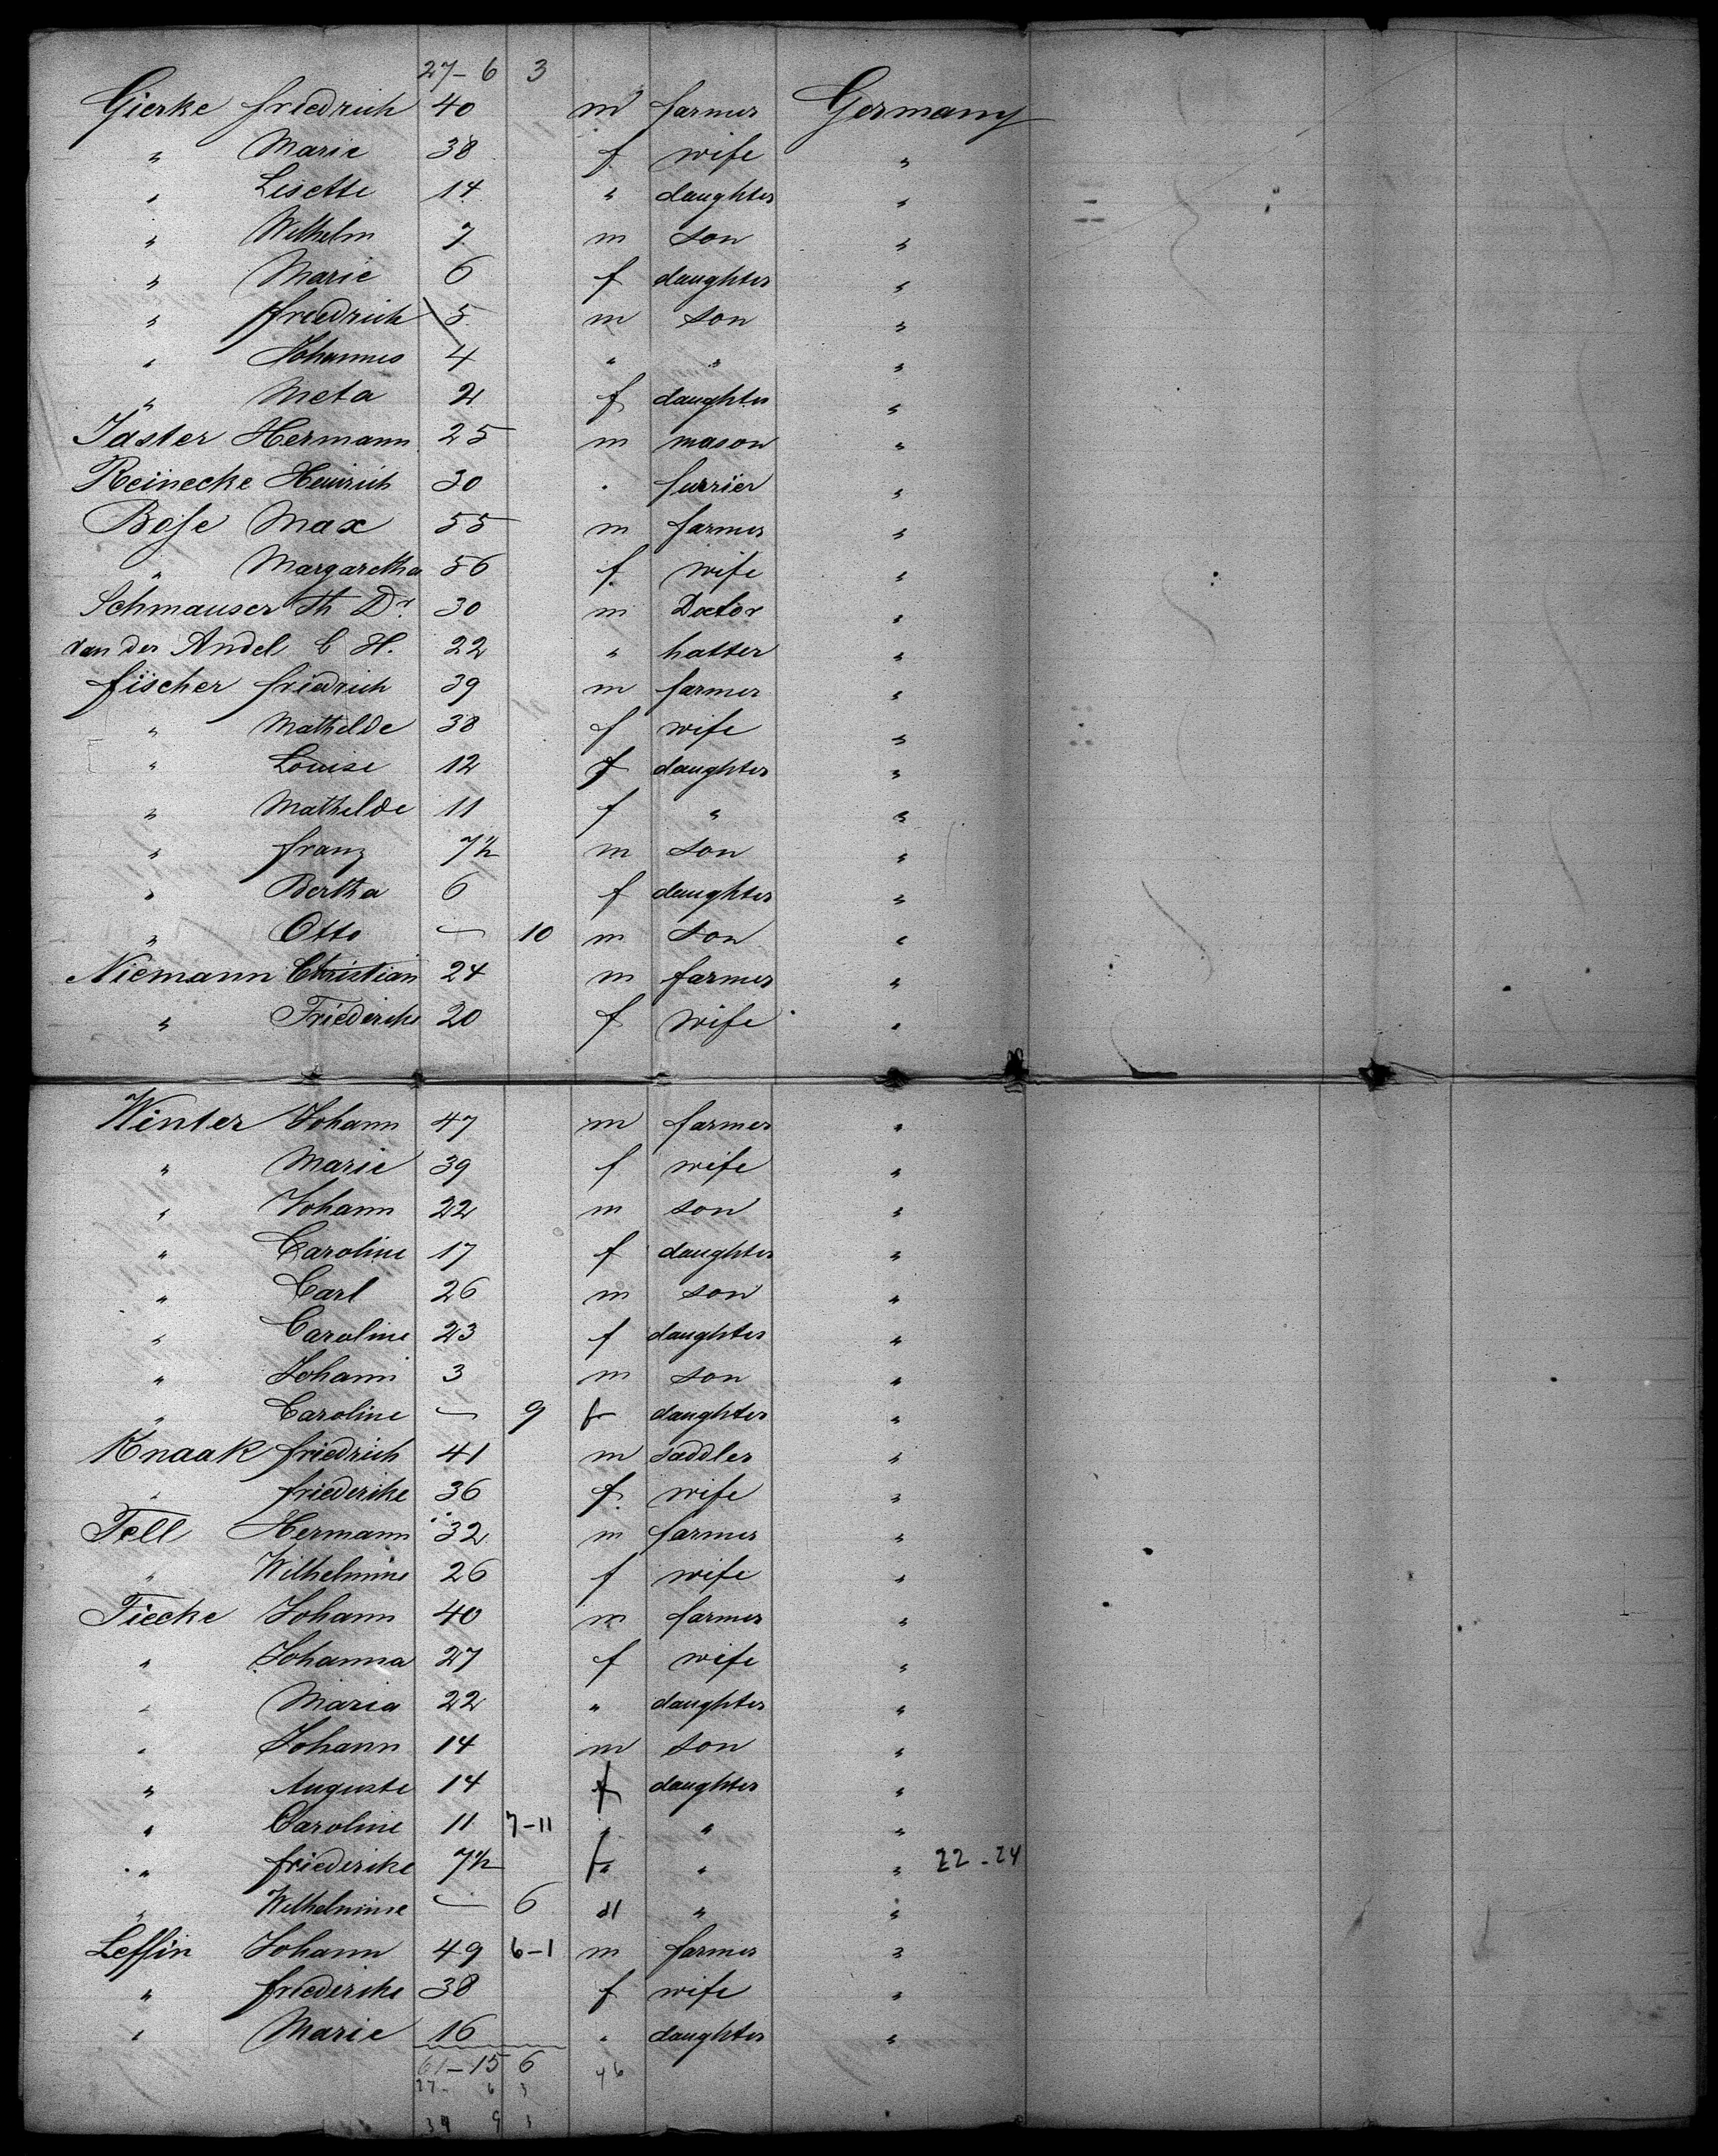 27- 6 3
Gierke Friedrich 40 m farmer Germany
" Marie 38 f wife "
" Lisette 14 " daughter "
" Wilhelm 7 m son "
" Marie 6 f daughter "
" Friedrich 5 m son "
" Johannes 4 " " "
" Meta 2 f daughter "
Jaster Hermann 25 m mason "
Reinecke Heinrich 30 " furrier "
Bose Max 55 m farmer "
" Margaretha 56 f wife "
Schmauser Th Dr 30 m Doctor "
van der Andel C H. 22 " hatter "
Fischer Friedrich 39 m farmer "
" Mathilde 38 f wife "
" Louise 12 f daughter "
" Mathilde 11 f " "
" Franz 7½ m son "
" Bertha 6 f daughter "
" Otto — 10 m son "
Niemann Christian 24 m farmer "
" Friederike 20 f wife "
Winter Johann 47 m farmer "
" Marie 39 f wife "
" Johann 22 m son "
" Caroline 17 f daughter "
" Carl 26 m son "
" Caroline 23 f daughter "
" Johann 3 m son "
" Caroline — 9 f daughter "
Knaak Friedrich 41 m saddler "
" Friederike 36 f wife "
Tell Hermann 32 m farmer "
" Wilhelmine 26 f wife "
Tiecke Johann 40 m farmer "
" Johanna 27 f wife "
" Maria 22 " daughter "
" Johann 14 m son "
" Auguste 14 f daughter "
" Caroline 11 7-11 " " "
" Friederike 7½ f " " 22-24
" Wilhelmine — 6 " " "
Leffin Johann 49 6-1 m farmer "
" Friederike 38 f wife "
" Marie 16 " daughter "
61-15 6 46
27- 6 3
34 9 3